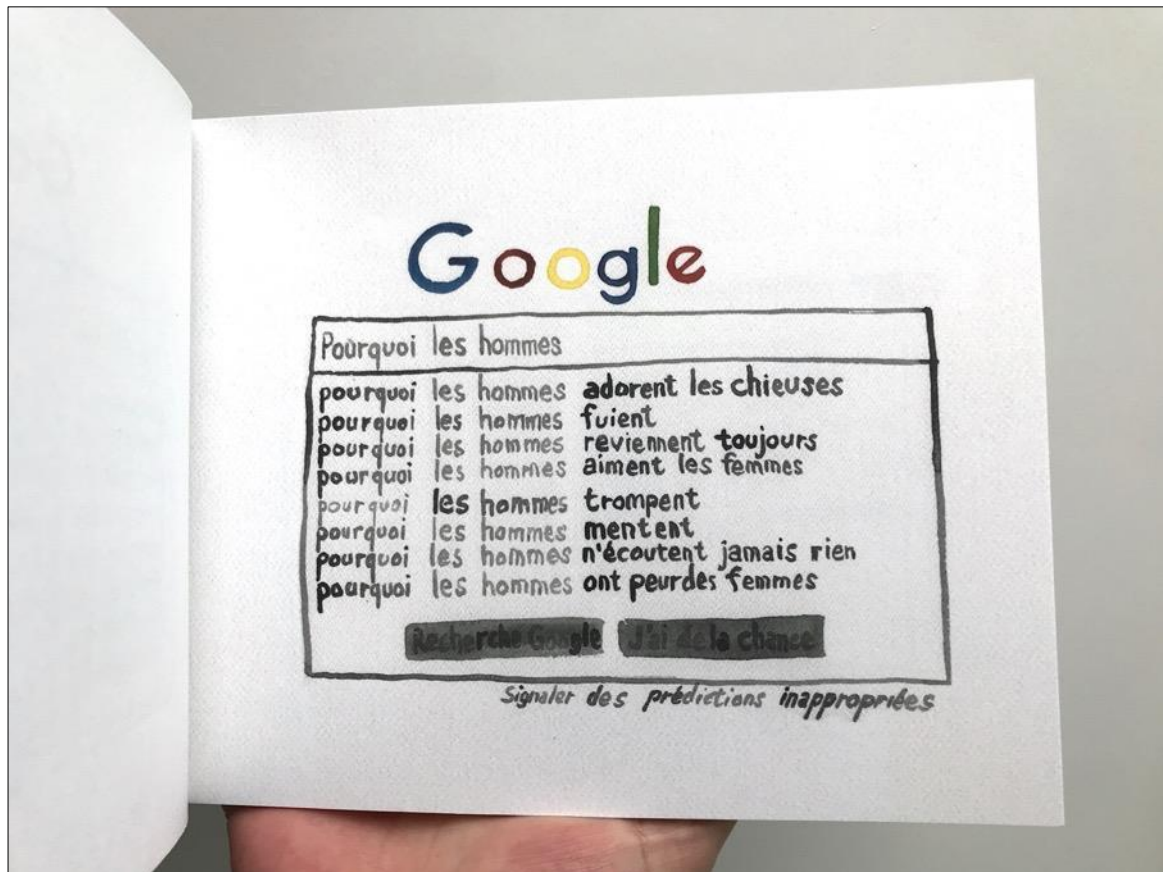 Google
Pourquoi les hommes
pourquoi les hommes adorent les chieuses
pourquoi les hommes fuient
pourquoi les hommes reviennent toujours
pourquoi les hommes aiment les femmes
pourquoi les hommes trompent
pourquoi les hommes mentent
pourquoi les hommes n'écoutent jamais rien
pourquoi les hommes ont peurdes femmes
Recherche Google J'ai de la chance
Signaler des prédictions inappropriées